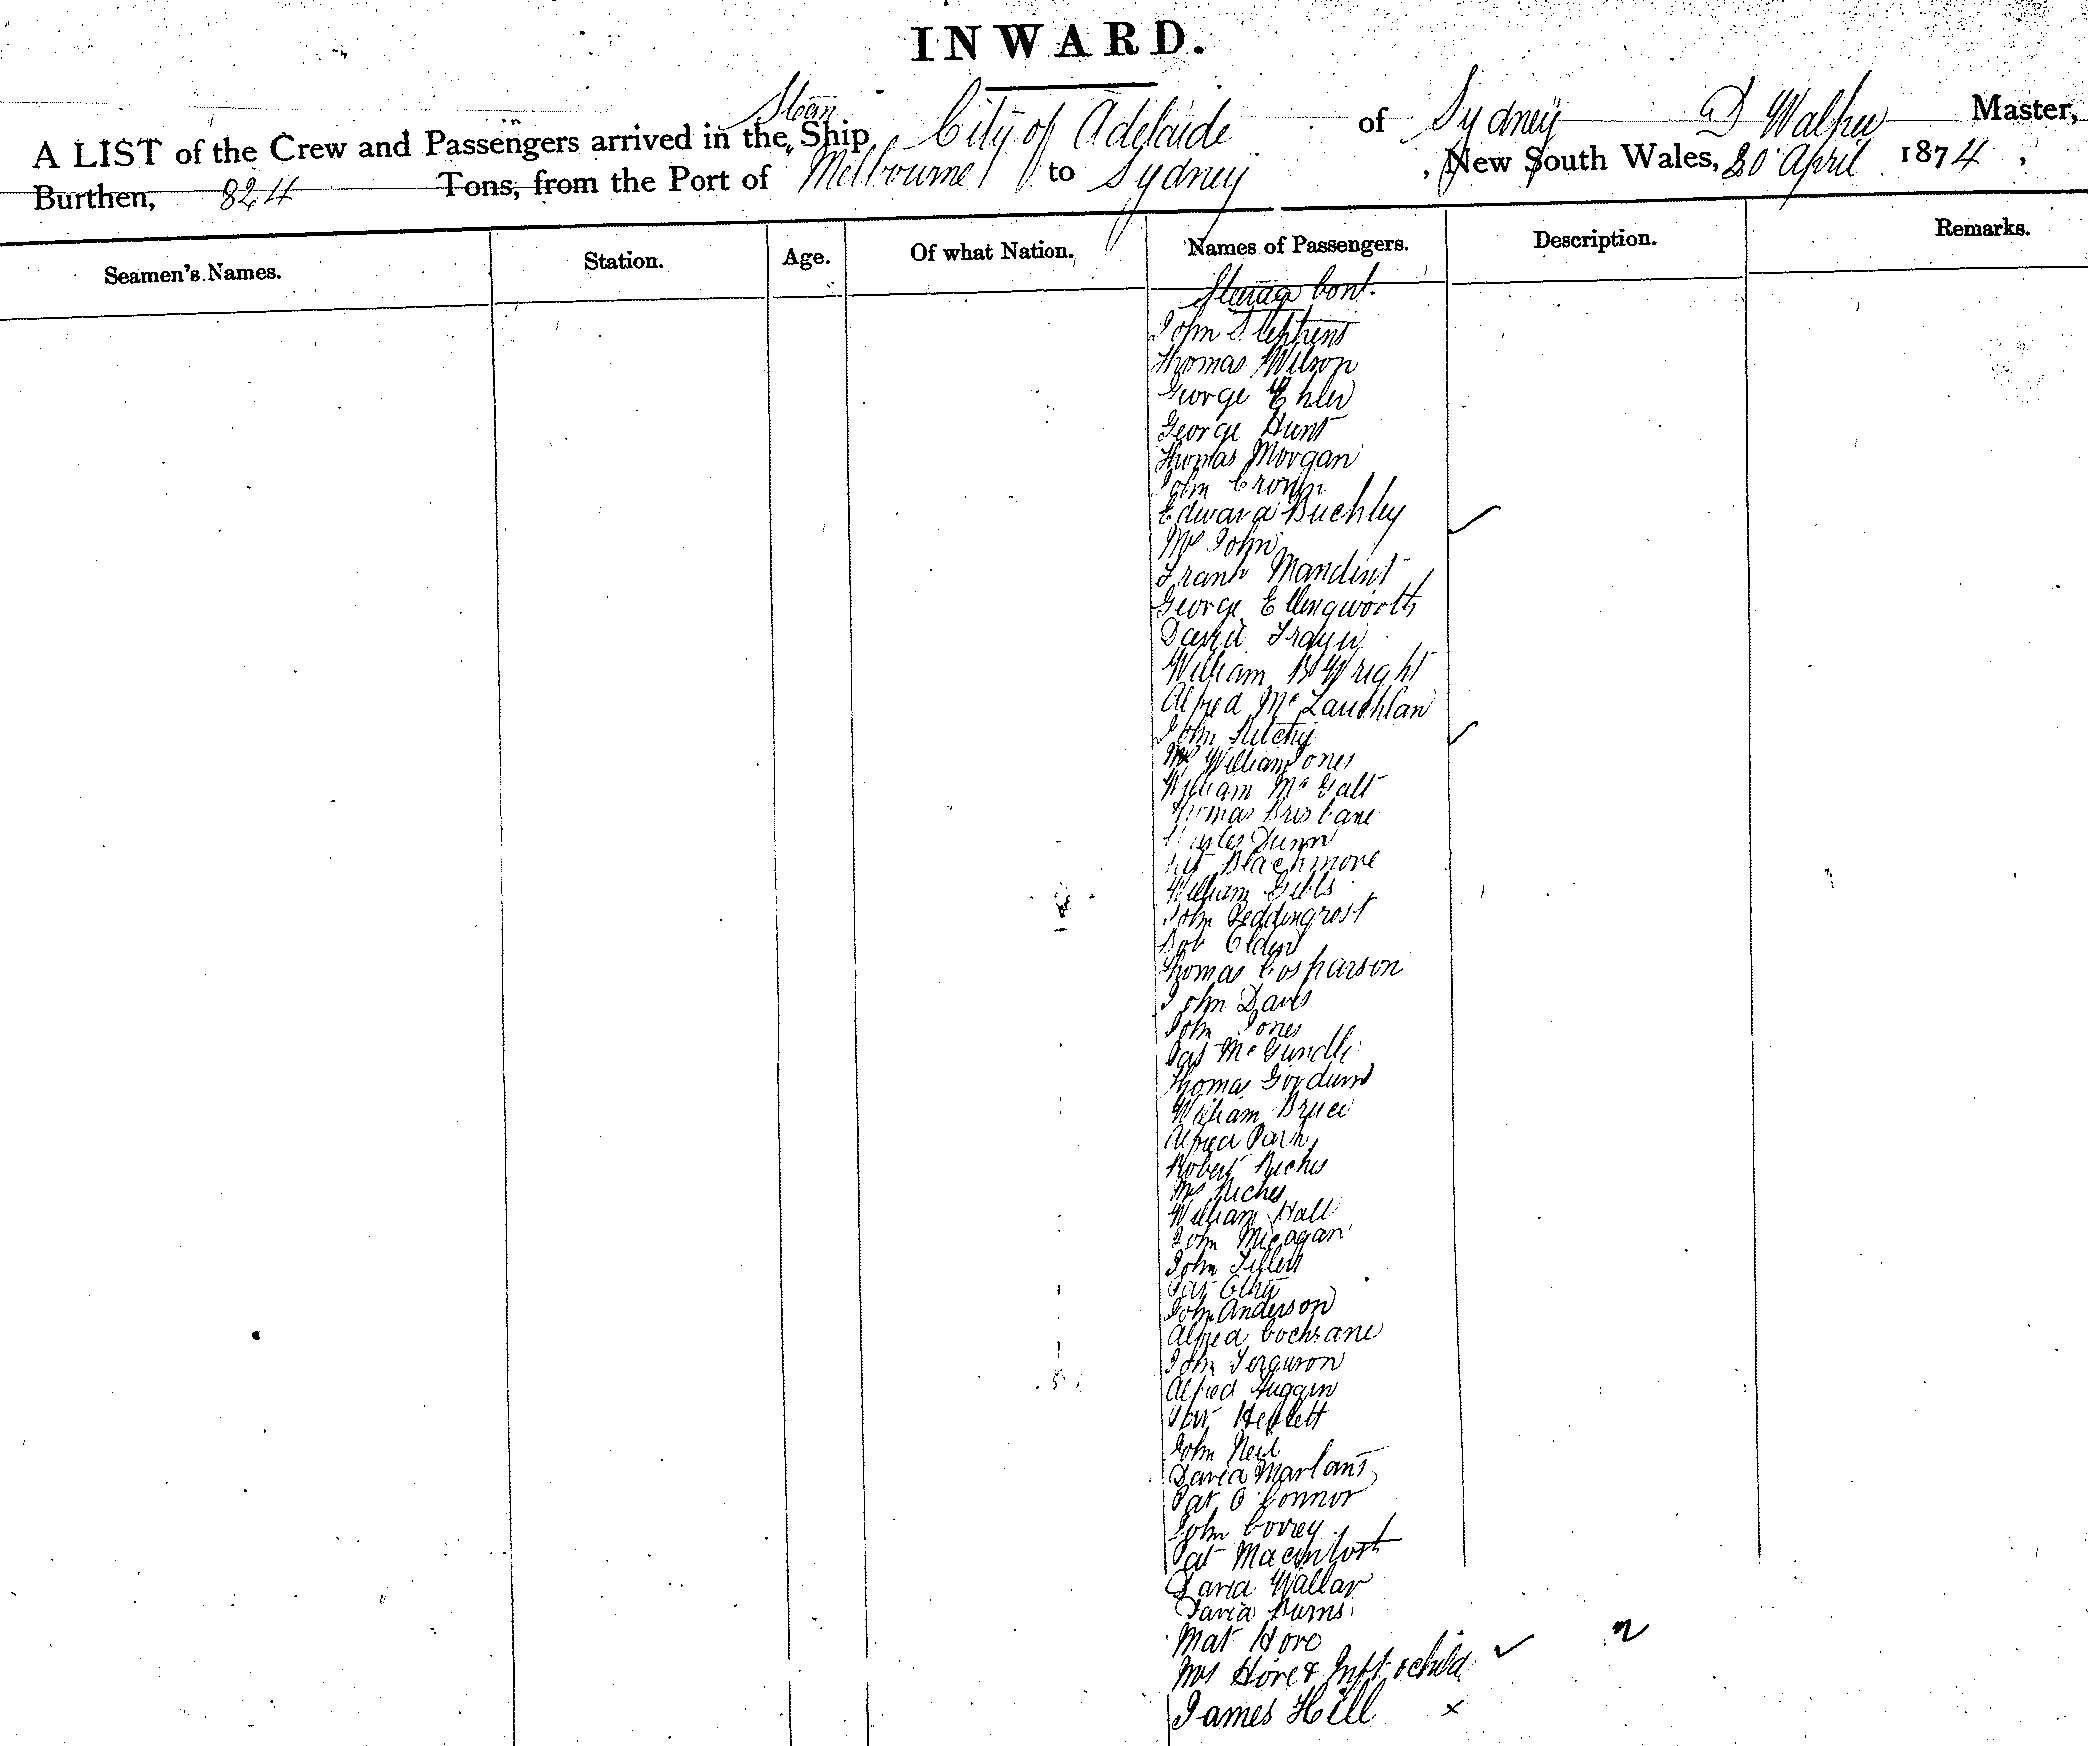 INWARD.
A LIST of the Crew and Passengers arrived in the Steam Ship City of Adelaide of Sydney D Walker Master,
Burthen, 824 Tons, from the Port of Melbourne to Sydney , New South Wales, 20 April 1874 ,
Seamen's Names. Station. Age. Of what Nation. Names of Passengers. Description. Remarks.
Steerage Cont.
John Stephens
Thomas Wilson
George Ehler
George Hunt
Thomas Morgan
John Cronin
Edward Buckley
Mrs John
Frank
George Ellingworth
David
William B Wright
Alfred Mc Lauchlan
John Ritchy
Mrs William Jones
William Mc Galt
Thomas Brisbane
Charles Dunn
Blackmore
William Gibbs
John Peddingrost
Bob Elden
Thomas Cospharson
John Davis
John Jones
Jas Mc
Thomas
William Bruce
Alfred Park
Robert Riches
Mrs Riches
William Hall
John
John
John Anderson
Alfred Cochrane
John Ferguson
Alfred Huggin
John Neil
David
Pat O'Connor
John Correy
Pat Macintosh
David Wallar
David Burns
Mat Hore
Mrs Hore & Inft child
James Hill x